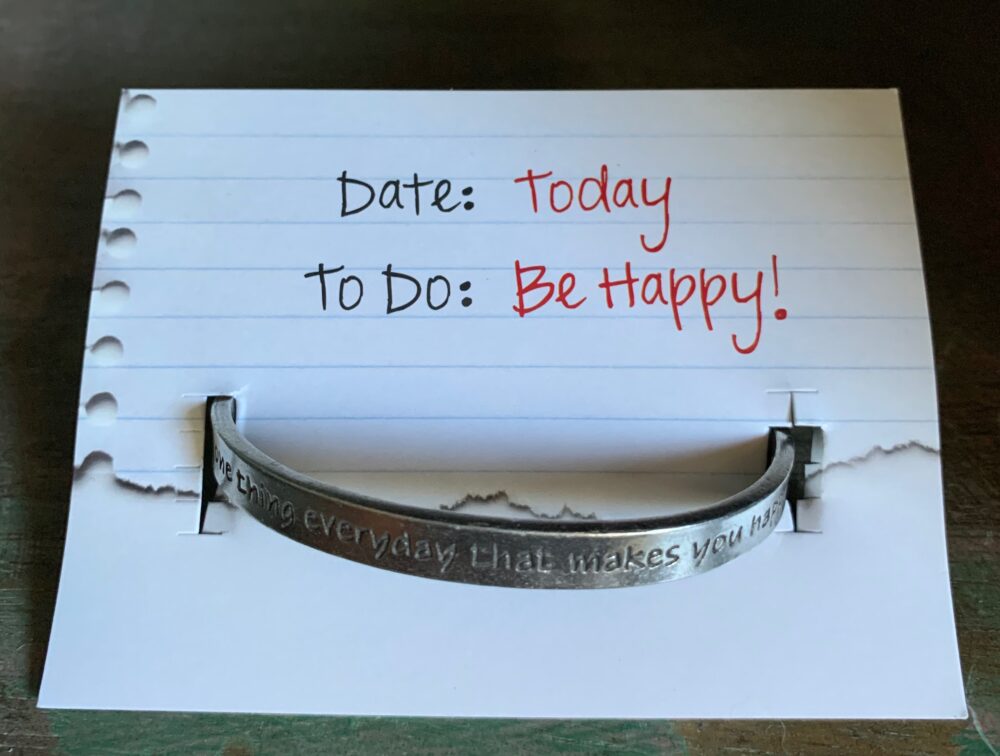 Date: Today
To Do: Be Happy!
one thing everyday that makes you happy